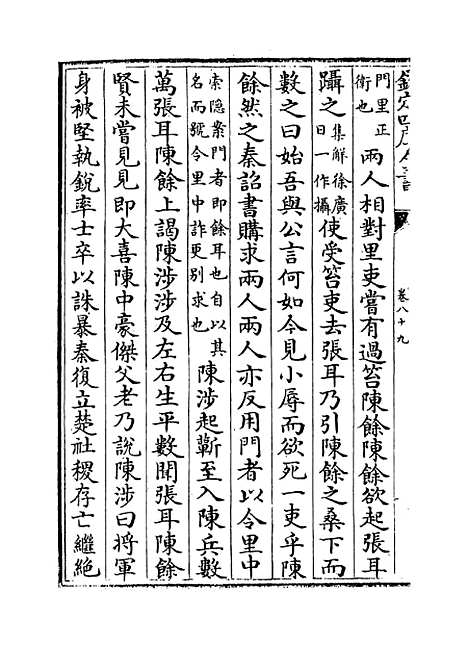 欽定四庫全書
卷八十九
門里正
衛也
兩人相對里吏嘗有過笞陳餘陳餘欲起張耳
躡之
集解徐廣
曰一作攝
使受笞吏去張耳乃引陳餘之桑下而
數之曰始吾與公言何如今見小辱而欲死一吏乎陳
餘然之秦詔書購求兩人兩人亦反用門者以令里中
索隱案門者即餘耳也自以其
名而號令里中詐更別求也
陳涉起蘄至入陳兵數
萬張耳陳餘上謁陳涉涉及左右生平數聞張耳陳餘
賢未嘗見見即大喜陳中豪傑父老乃說陳涉曰將軍
身被堅執銳率士卒以誅暴秦復立楚社稷存亡繼絕